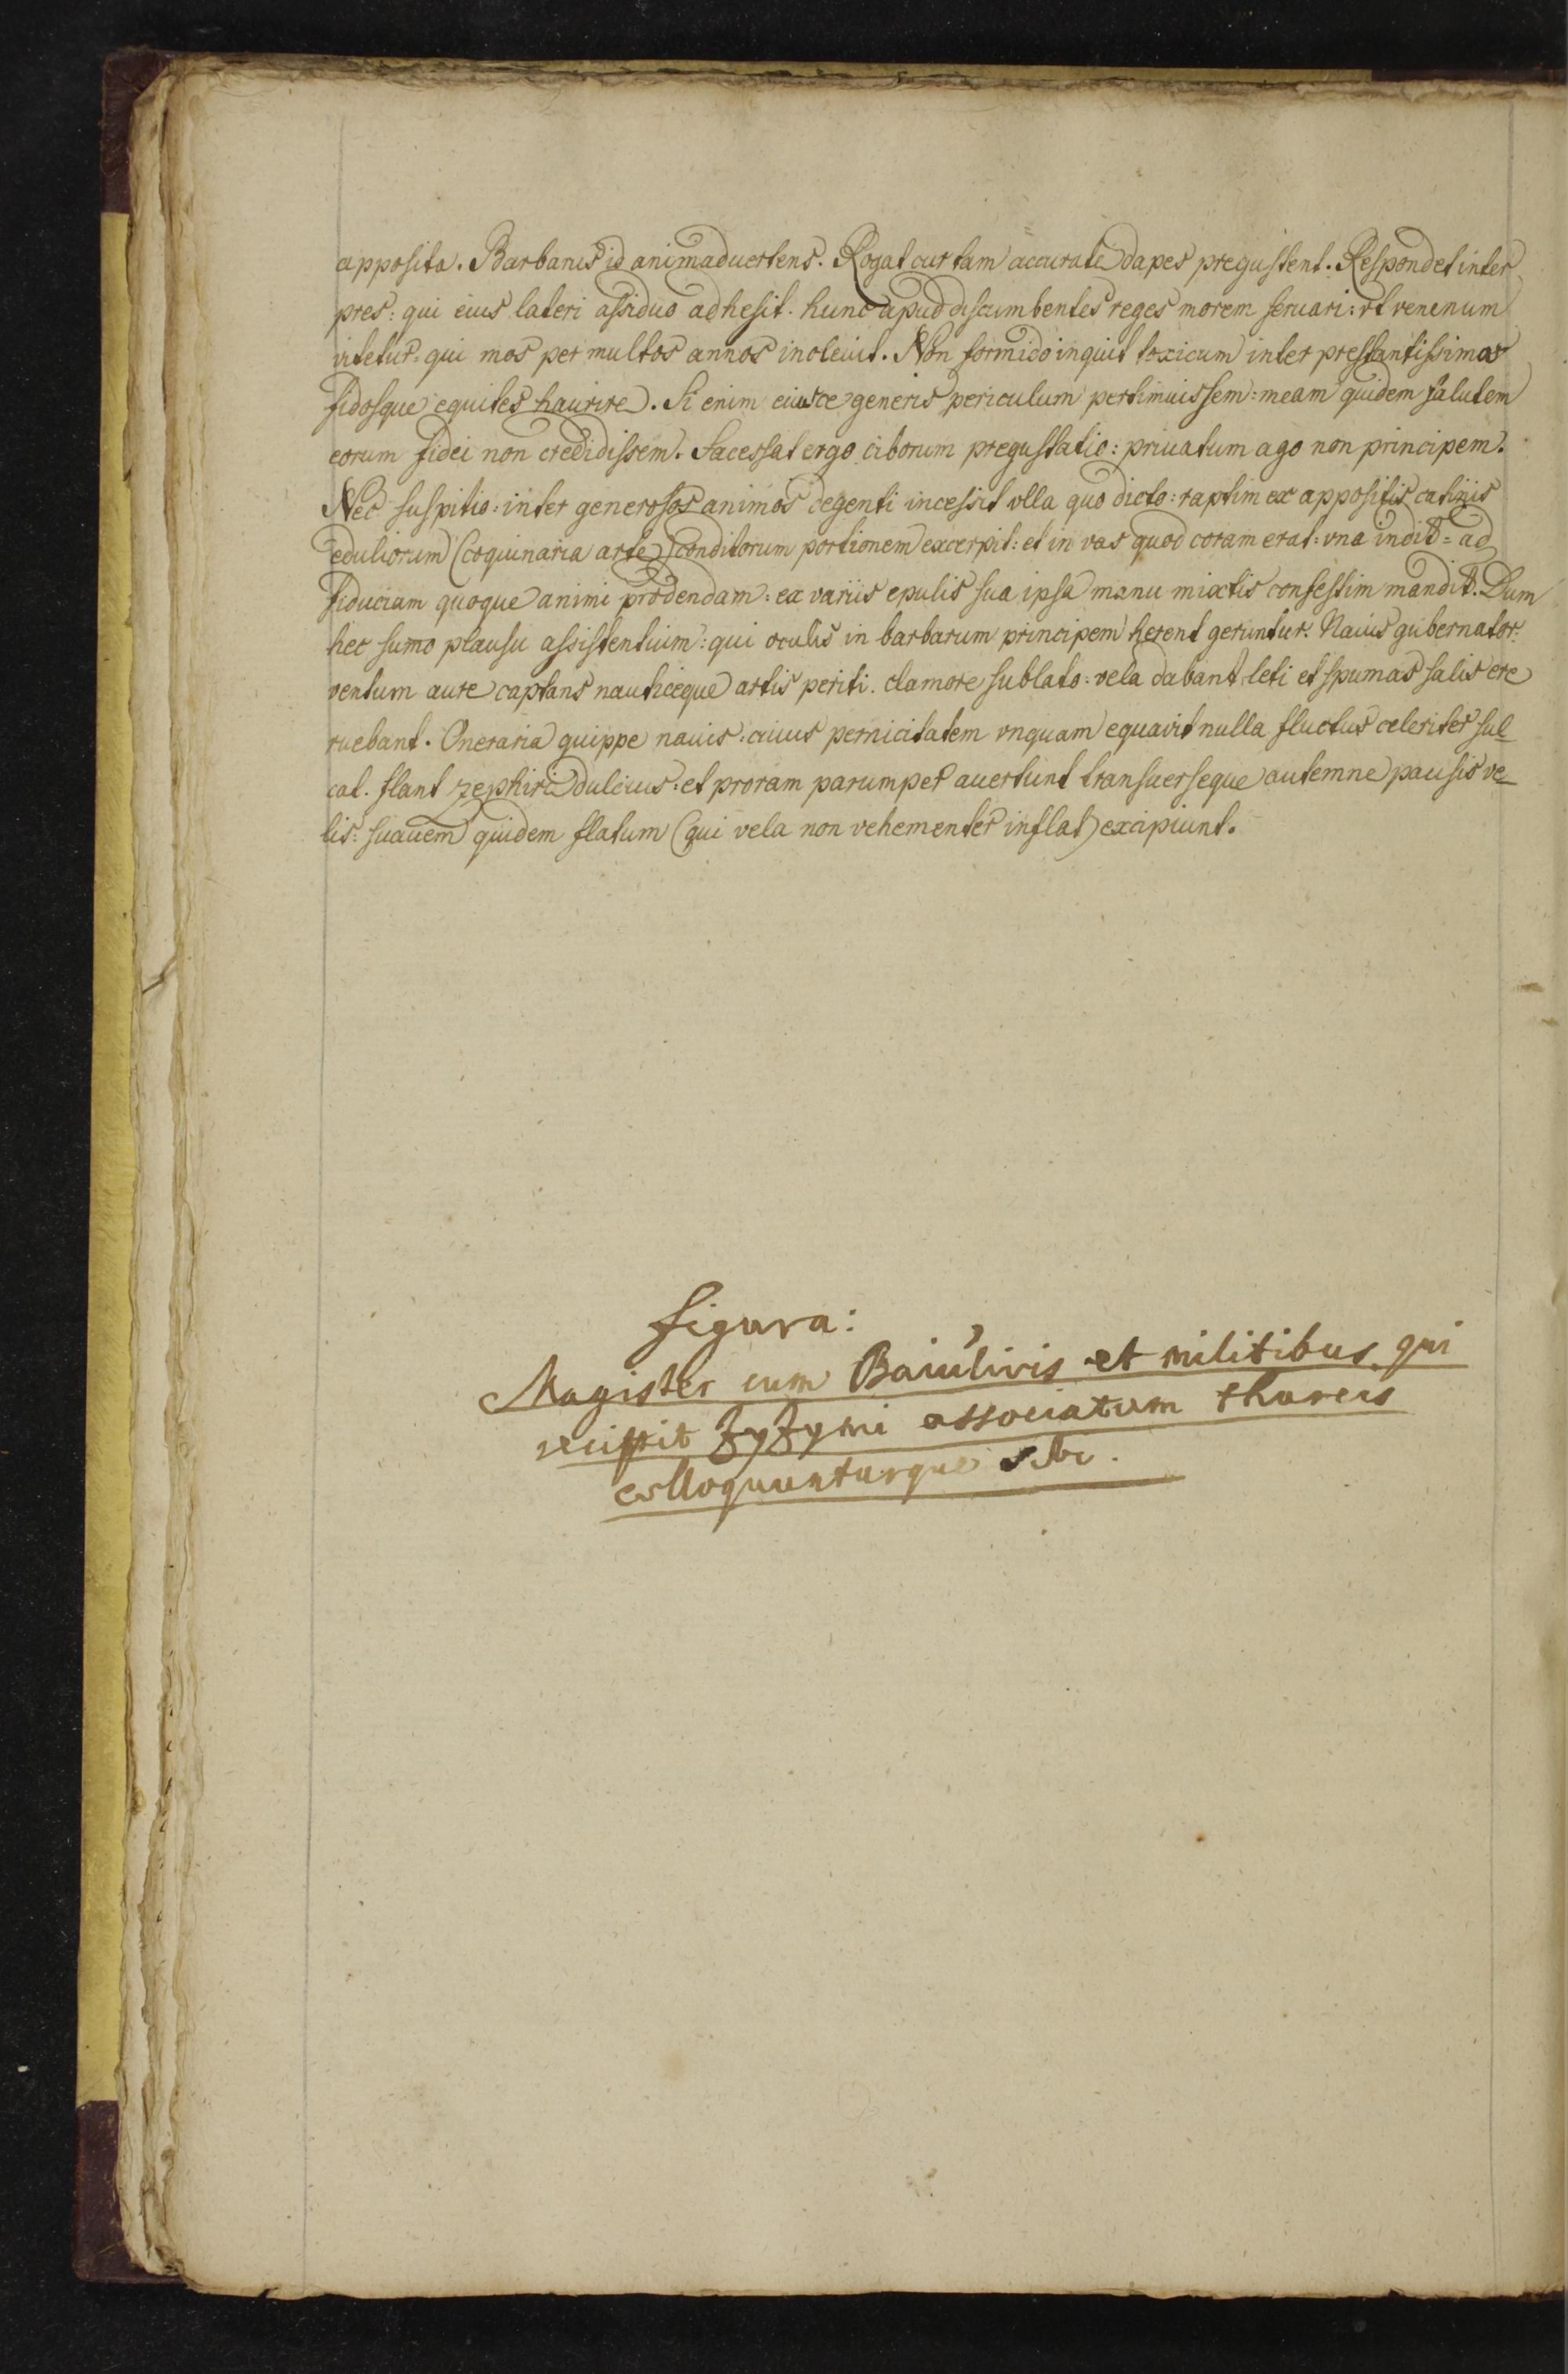 apposita. Barbarus id animaduertens. Rogat cur tam accurate dapes pregustent. Respondet inter
pres: qui eius lateri assiduo adhesit. hunc apud discumbentes reges morem seruari: vt venenum
vitetur: qui mos per multos annos inoleuit. Non formido inquit toxicum inter prestantissimos
fidosque equites haurire. Si enim eiusce generis periculum pertimuissem: meam quidem salutem
eorum fidei non credidissem. Facessat ergo ciborum pregustatio: priuatum ago non principem.
Nec suspitio: inter generosos animos degenti incessit vlla quo dicto: raptim ex appositis catinis
eduliorum (coquinaria arte) conditorum portionem excerpit: et in vas quod coram erat: vna indit: ad
fiduciam quoque animi prodendam: ex variis epulis sua ipsa manu mixtis confessim mandit. Dum
hec sumo plausu assistentium: qui oculis in barbarum principem herent geruntur. Nauis gubernator:
ventum aure captans nauticeque artis periti. clamore sublato: vela dabant leti et spumas salis ere
ruebant. Oneraria quippe nauis. cuius pernicitatem vnquam equavit nulla fluctus celeriter sul_
cat. flant zephiri dulcius: et proram parumper auertunt transuerseque antemne pansis ve_
lis: suauem quidem flatum (qui vela non vehementer inflat) excipiunt.
figura:
Magister cum Baiulivis et militibus qui
recippit Zyzymi associatum thureis
colloquunturque sibi.